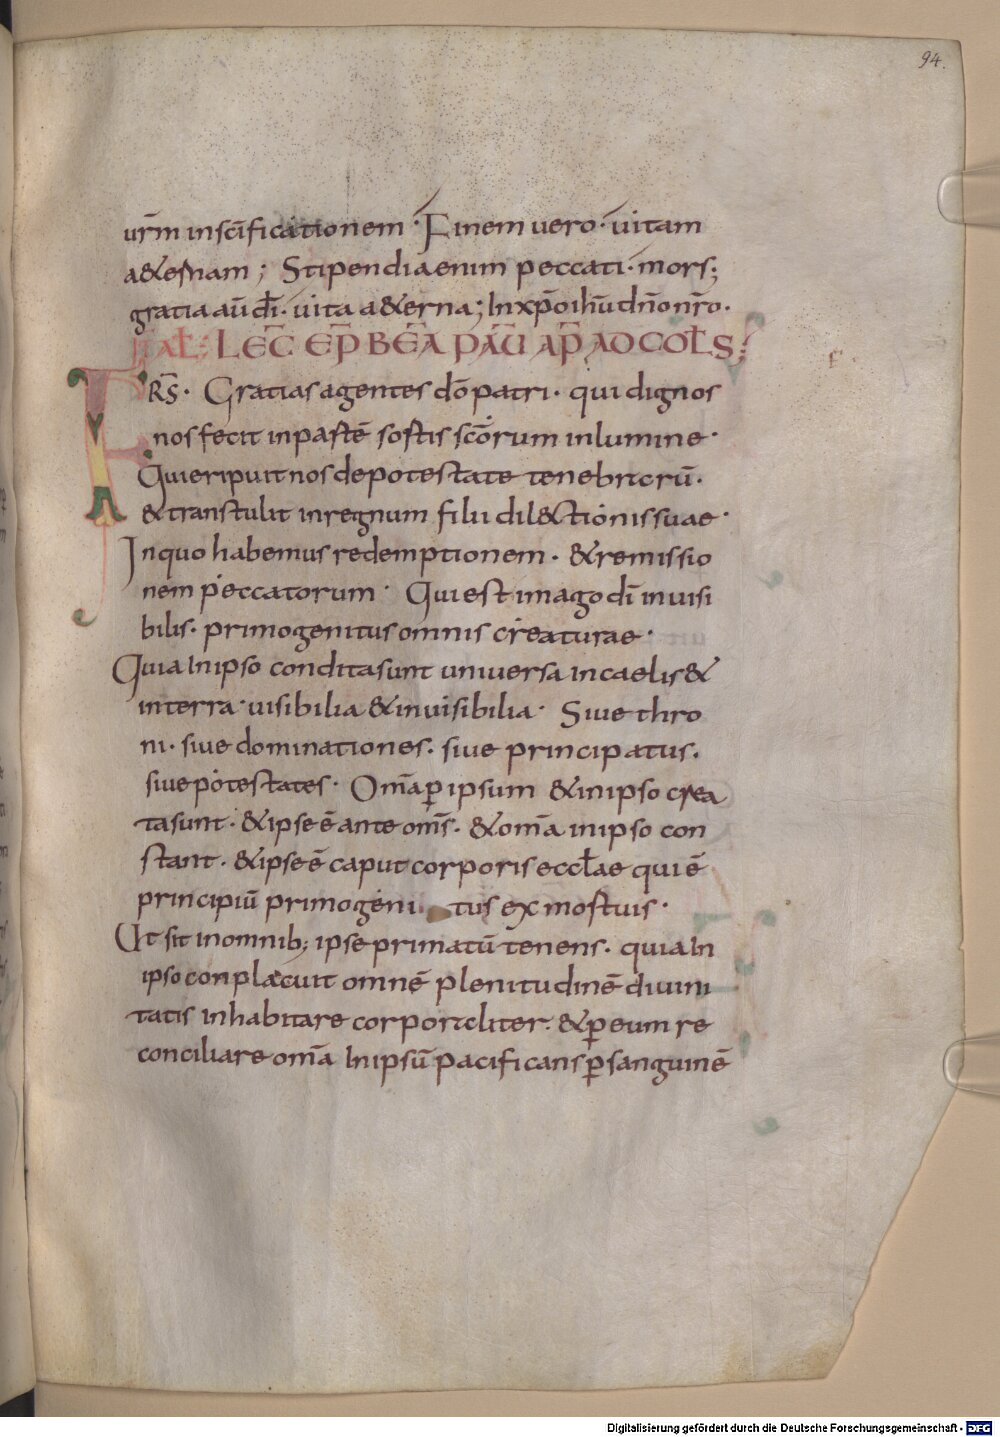 94.
ur̄m in sc̄ificationem · Finem uero · uitam
a&ernam ; Stipendia enim peccati · mors ;
gratia au̅ dī · uita a&erna ; In xp̄o ihū dn̄o nr̄o .
LEC̄ EP̄ BEĀ PAŪ AP̄ AD COŁS ;
FRS̄ · Gratias agentes dō patri · qui dignos
nos fecit in partē sortis sc̄orum in lumine ·
Qui eripuit nos de potestate tenebrarū .
& transtulit in regnum filii dil&tionis suae ·
In quo habemus redemptionem . & remissio
nem peccatorum · Qui est imago dī inuisi
bilis . primogenitus omnis creaturae ·
Quia In ipso condita sunt uniuersa In caelis &
in terra · uisibilia & inuisibilia · Siue thro
ni . siue dominationes . siue principatus .
siue potestates · Om̄a ꝑ ipsum & in ipso crea
ta sunt . & ipse ē ante om̄s . & om̄a in ipso con
stant . & ipse ē caput corporis eccłae qui ē
principiū primogeni tus ex mortuis ·
Ut sit in omnib; ipse primatū tenens . quia In
ipso conplacuit omnē plenitudinē diuini
tatis inhabitare corporaliter . & ꝑ eum re
conciliare om̄a In ipsū pacificans ꝑ sanguinē
Digitalisierung gefördert durch die Deutsche Forschungsgemeinschaft - DFG